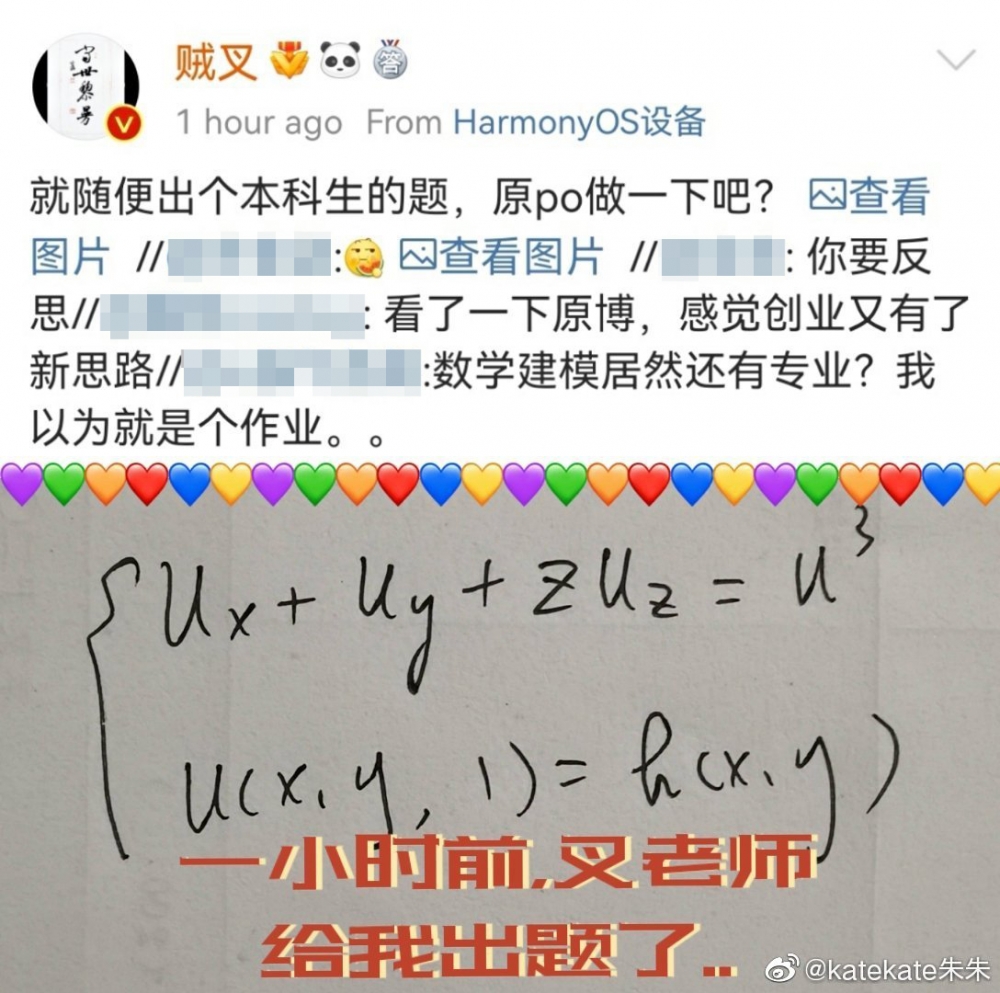 守世藜芳
贼叉
答
V
1 hour ago From HarmonyOS设备
就随便出个本科生的题，原po做一下吧？ 查看
图片 // : 查看图片 // : 你要反
思// : 看了一下原博，感觉创业又有了
新思路// :数学建模居然还有专业？我
以为就是个作业。。
{ u_x + u_y + z u_z = u^3
u(x, y, 1) = h(x, y)
一小时前,叉老师
给我出题了..
@katekate朱朱